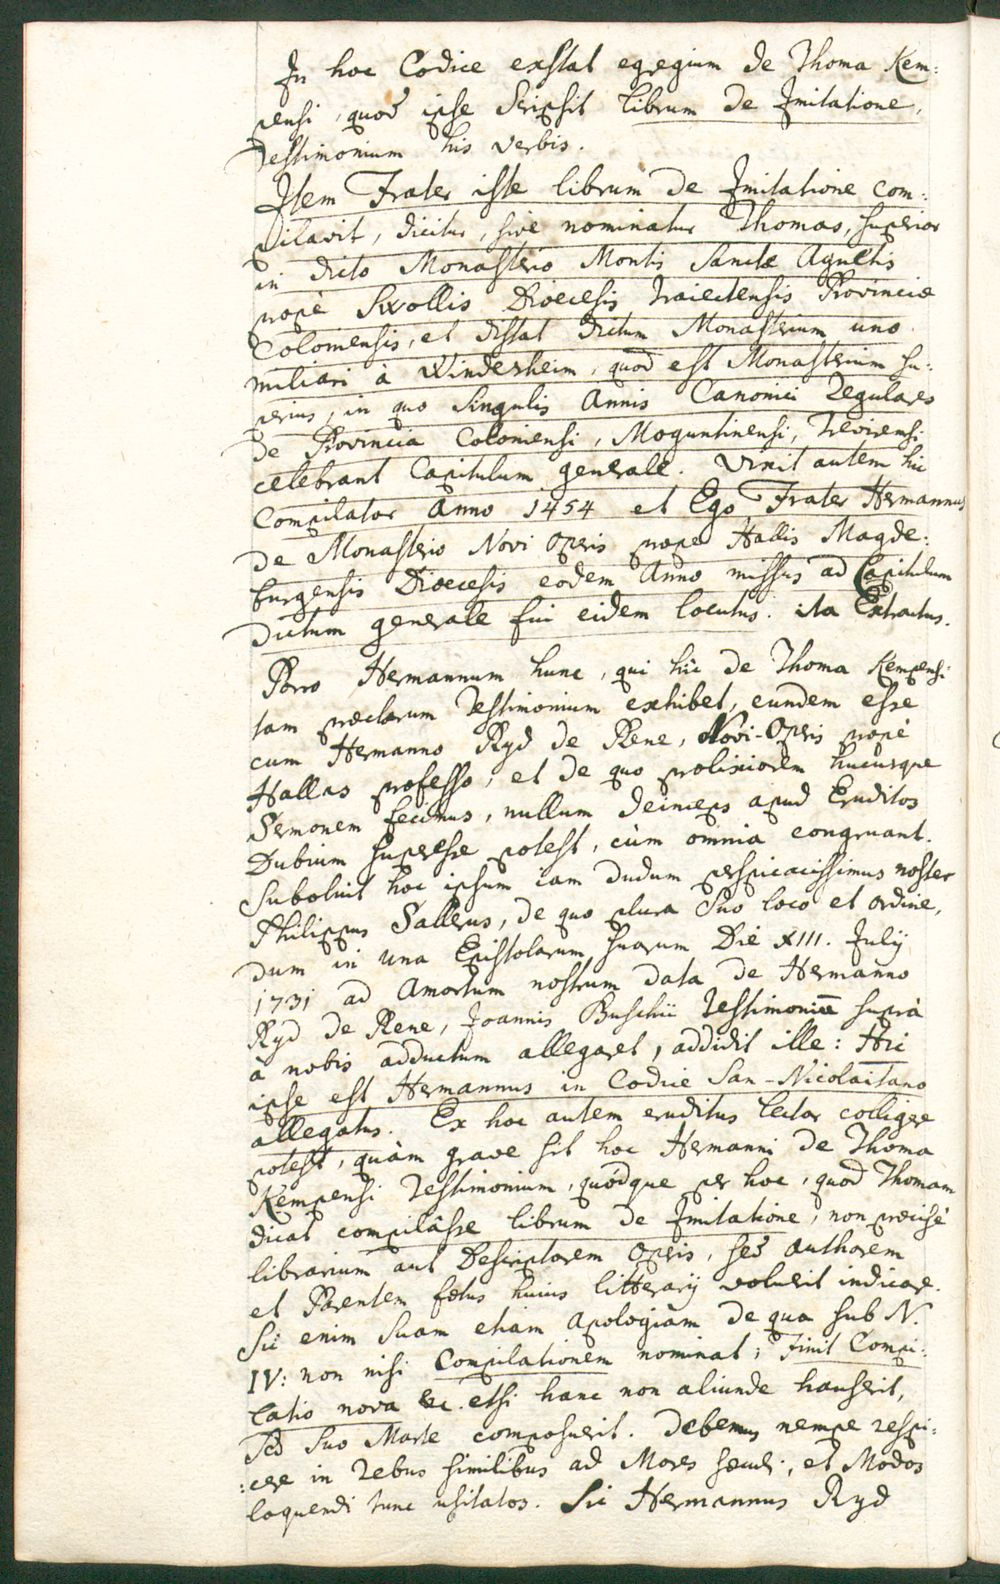 In hoc Codice exstat egregium de Thoma Kem:
pensi, quod ipse scripsit librum de Imitatione,
Testimonium his verbis.
Item Frater iste librum de Imitatione com:
pilavit, dicitur, sive nominatur Thomas, superior
in dicto Monasterio Montis Sanctæ Agnetis
propè Swollis Dioecesis Traiectensis Provinciæ
Coloniensis, et distat dictum Monasterium uno
miliari à Windesheim, quod est Monasterium su:
perius, in quo singulis Annis Canonici Regulares
de Provincia Coloniensi, Moguntinensi, Trevirensi
celebrant Capitulum generale. Vixit autem hic
Compilator Anno 1454 et Ego Frater Hermannus
de Monasterio Novi operis prope Hallis Magde:
burgensis Dioecesis eodem Anno missus ad Capitulum
dictum generale fui eidem locutus. ita Extractus.
Porro Hermannum hunc, qui hîc de Thoma Kempensi
tam præclarum Testimonium exhibet, eundem esse
cum Hermanno Ryd de Rene, Novi-Operis propè
Hallas professo, et de quo prolixiorem hucusque
Sermonem fecimus, nullum deinceps apud Eruditos
Dubium superesse potest, cùm omnia congruant.
Suboluit hoc ipsum iam dudum perspicacissimus noster
Philippus Sallerus, de quo plura suo loco et ordine,
dum in una Epistolarum suarum Die XIII. Julij
1731 ad Amortum nostrum data de Hermanno
Ryd de Rene, Joannis Buschii Testimonium suprà
à nobis adductum allegaret, addidit ille: Hic
ipse est Hermannus in Codice San-Nicolaitano
allegatus. Ex hoc autem eruditus lector colligere
potest, quàm grave sit hoc Hermanni de Thoma
Kempensi Testimonium, quodque per hoc, quod Thomam
dicat compilâsse librum de Imitatione, non præcisè
librarium aut Descriptorem operis, sed authorem
et Parentem fœtus huius litterarij voluerit indicare.
Sic enim suam etiam Apologiam de qua sub N.
IV: non nisi Compilationem nominat; Finit Compi:
latio nova &c. etsi hanc non aliunde hauserit,
sed suo Marte composuerit. Debemus nempe respi:
:cere in rebus similibus ad Mores sæculi, et Modos
loquendi tunc usitatos. Sic Hermannus Ryd